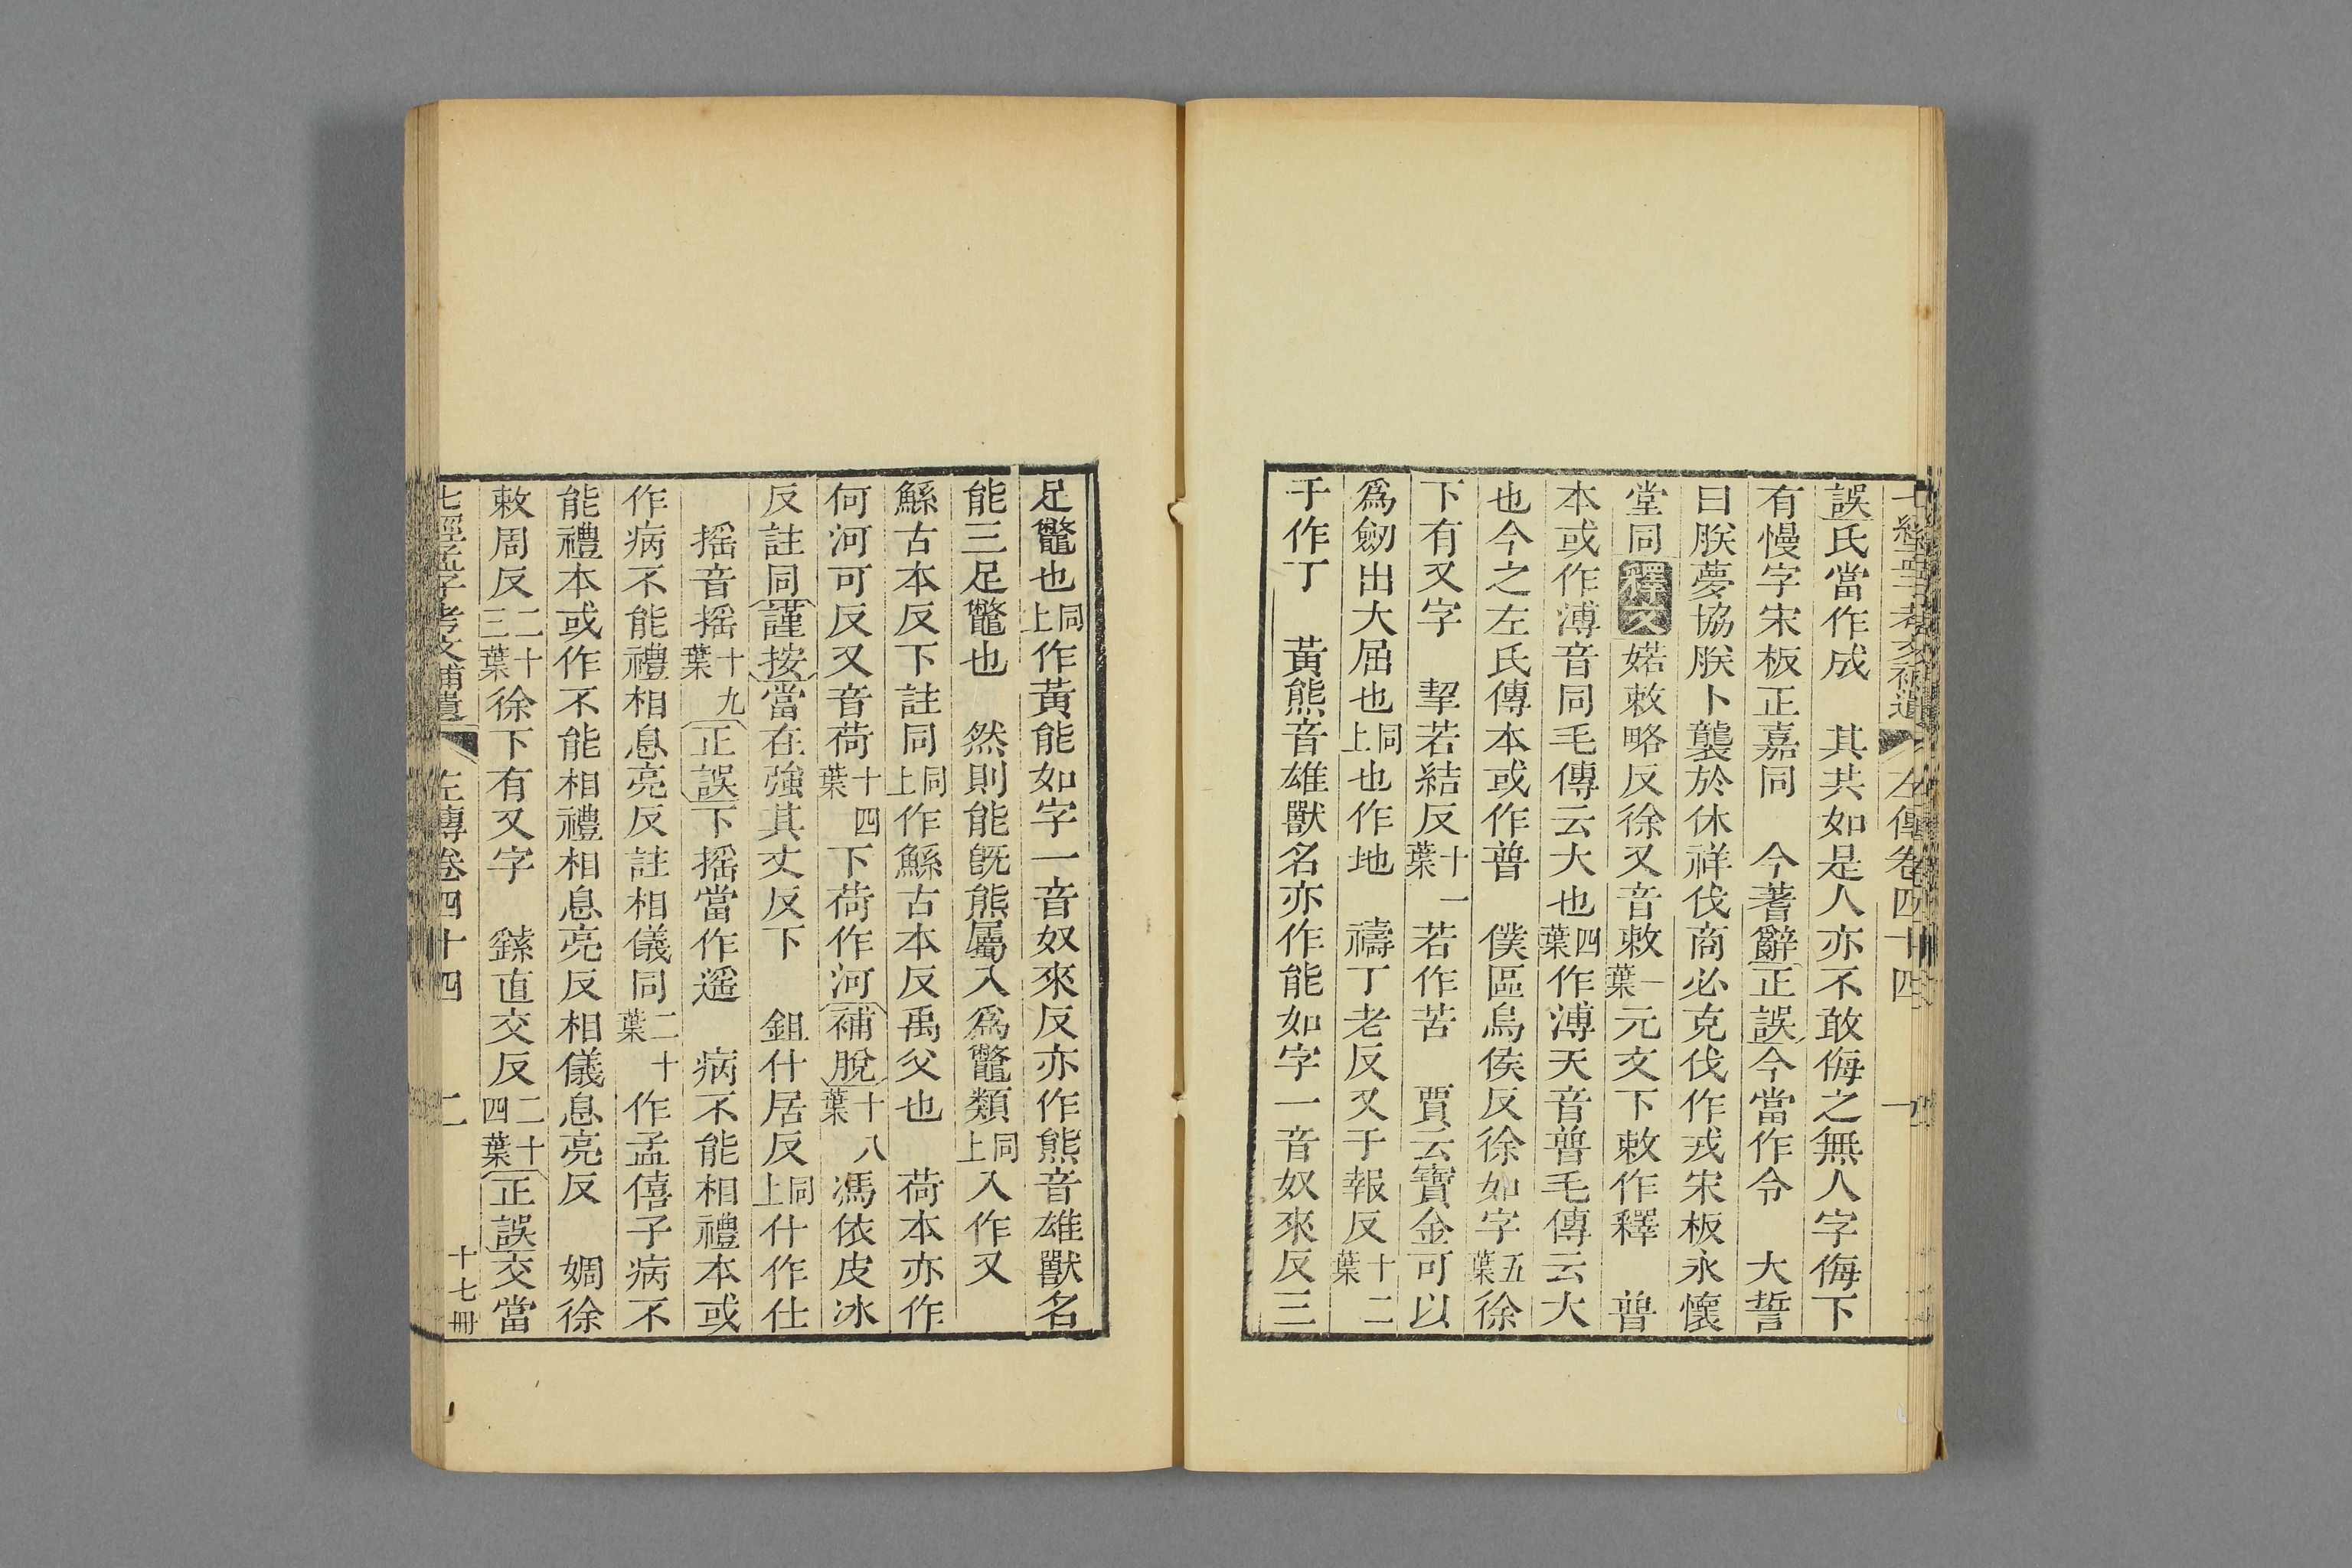 七經孟子考文補遺 左傳卷四十四 一
誤氏當作成 其共如是人亦不敢侮之無人字侮下
有慢字宋板正嘉同 今蓍辭正誤今當作令 大誓
曰朕夢協朕卜襲於休祥伐商必克伐作戎宋板永懷
堂同釋文婼敕略反徐又音敕一葉元文下敕作釋 普
本或作溥音同毛傳云大也四葉作溥天音普毛傳云大
也今之左氏傳本或作普 僕區烏侯反徐如字五葉徐
下有又字 挈若結反十一葉若作苦 賈云寶金可以
爲劒出大屈也同上也作地 禱丁老反又于報反十二葉
于作丁 黃熊音雄獸名亦作能如字一音奴來反三
足鼈也同上作黃能如字一音奴來反亦作熊音雄獸名
能三足鼈也 然則能旣熊屬入爲鼈類同上入作又
鯀古本反下註同同上作鯀古本反禹父也 荷本亦作
何河可反又音荷十四葉下荷作河補脫十八葉馮依皮冰
反註同謹按當在強其丈反下 鉏什居反同上什作仕
摇音摇十九葉正誤下摇當作遥 病不能相禮本或
作病不能禮相息亮反註相儀同二十葉作孟僖子病不
能禮本或作不能相禮相息亮反相儀息亮反 婤徐
敕周反二十三葉徐下有又字 鏼直交反二十四葉正誤交當
七經孟子考文補遺 左傳卷四十四 二 十七冊